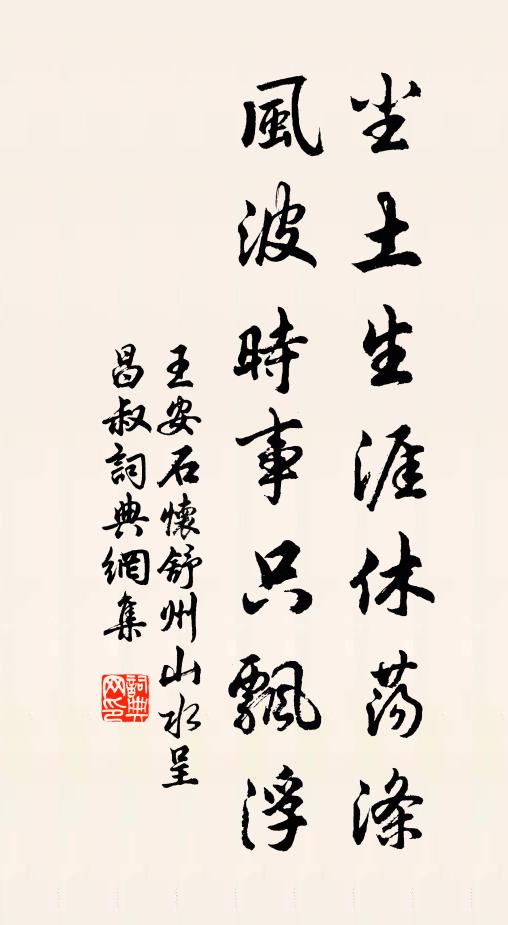 尘土生涯休荡滌
風波時事只飄浮
王安石懷舒州山水呈
昌叔詞典網集
詞典网印